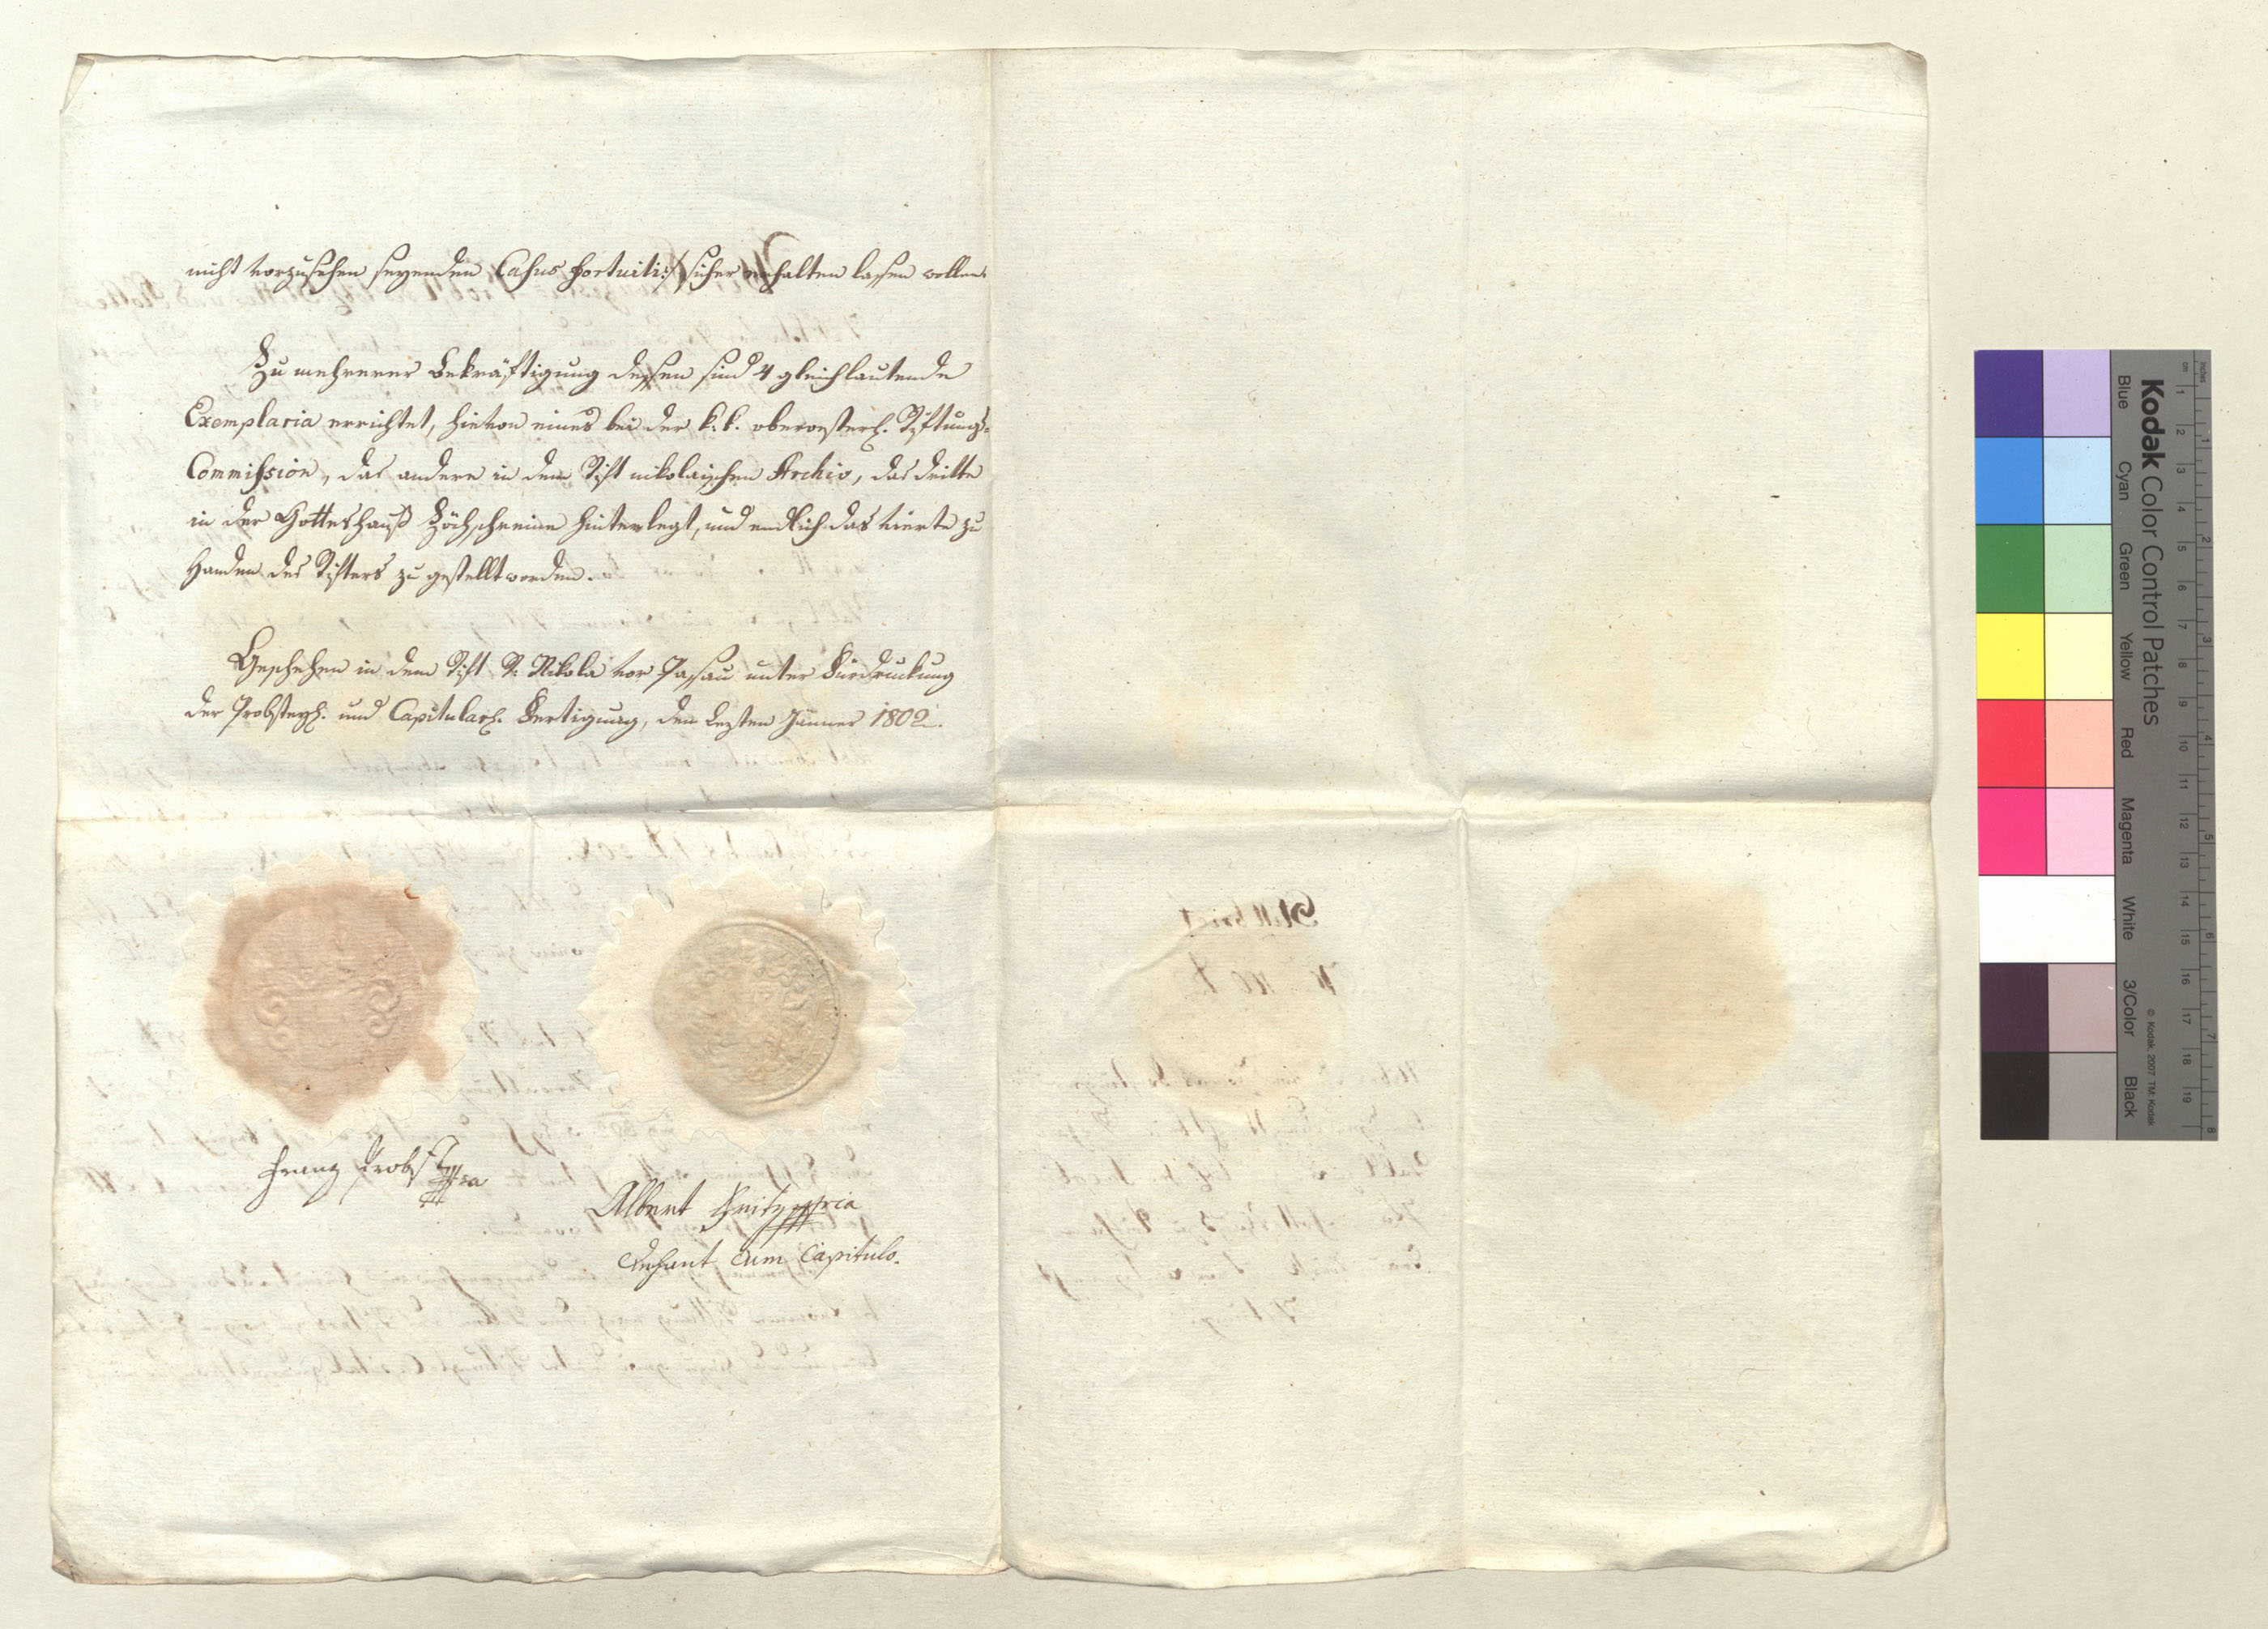 nicht vorzusehen seyenden Casus fortuiti :/ sicher erhalten lassen wollen.
Zu mehrerer Bekräftigung dessen sind 4 gleichlautende
Exemplaria errichtet, hievon eines bei der k. k. oberoesterch. Stiftungs-
Commission, das andere in dem Stift nikolaischen Archiv, das dritte
in der Gotteshauß Zöchschreine hinterlegt, und endlich das vierte zu
Handen des Stifters zu gestellt worden.
Geschehen in dem Stift St. Nikola vor Passau unter Fürdruckung
der Probsteyl. und Capitularl. Fertigung, den lezten Jänner 1802.
Franz Probst mppria
Albert mppria
Dechant cum Capitulo.
Kodak Color Control Patches
Blue Cyan Green Yellow Red Magenta White 3/Color Black
© Kodak, 2007 TM: Kodak
inches 1 2 3 4 5 6 7 8
cm 1 2 3 4 5 6 7 8 9 10 11 12 13 14 15 16 17 18 19